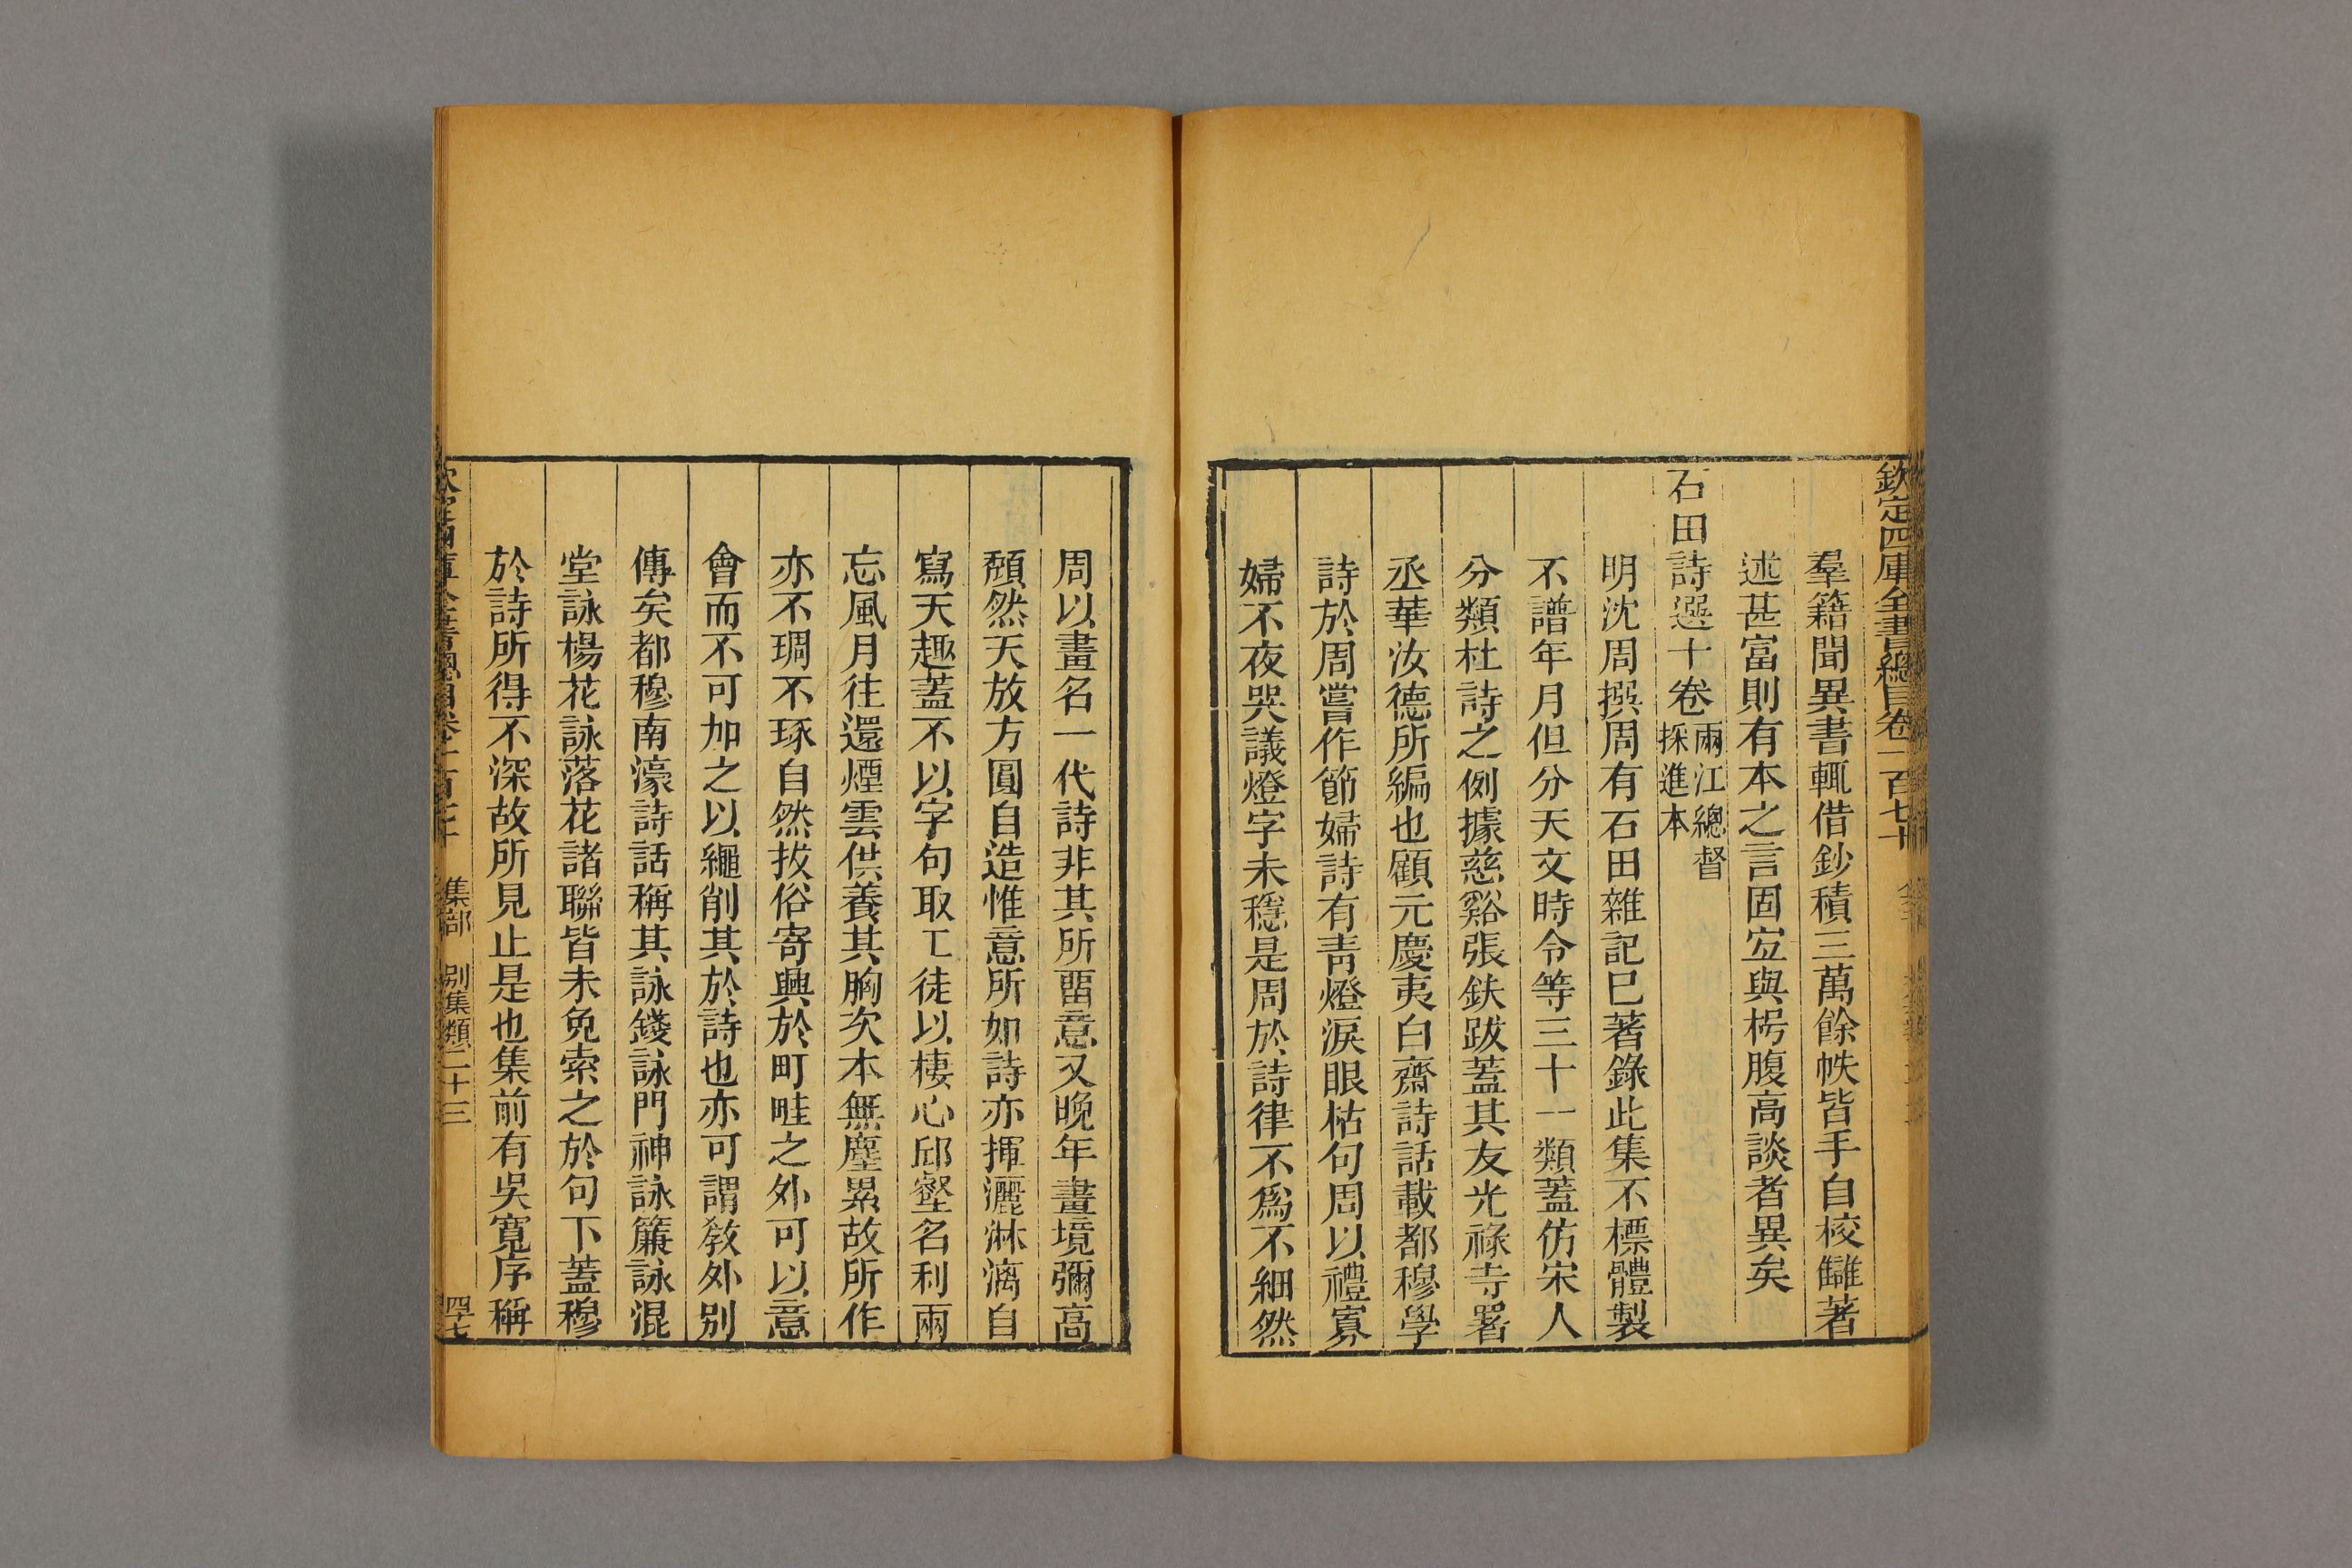 欽定四庫全書總目卷一百七十
羣籍聞異書輒借鈔積三萬餘帙皆手自校讎著
述甚富則有本之言固宐與枵腹高談者異矣
石田詩選十卷兩江總督採進本
明沈周撰周有石田雜記巳著錄此集不標體製
不譜年月但分天文時令等三十一類蓋仿宋人
分類杜詩之例據慈谿張鈇跋蓋其友光祿寺署
丞華汝德所編也顧元慶夷白齋詩話載都穆學
詩於周嘗作節婦詩有青燈淚眼枯句周以禮寡
婦不夜哭議燈字未穩是周於詩律不爲不細然
周以畫名一代詩非其所畱意又晚年畫境彌高
頽然天放方圓自造惟意所如詩亦揮灑淋漓自
寫天趣蓋不以字句取工徒以棲心邱壑名利兩
忘風月往還煙雲供養其胸次本無塵累故所作
亦不琱不琢自然拔俗寄興於町畦之外可以意
會而不可加之以繩削其於詩也亦可謂敎外別
傳矣都穆南濠詩話稱其詠錢詠門神詠簾詠混
堂詠楊花詠落花諸聯皆未免索之於句下蓋穆
於詩所得不深故所見止是也集前有吳寬序稱
集部 別集類二十三 四十七